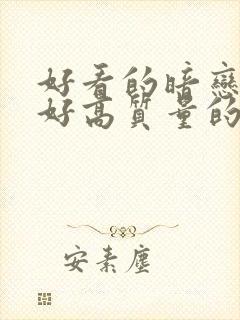 好看的暗戀
好高質量的
安素塵